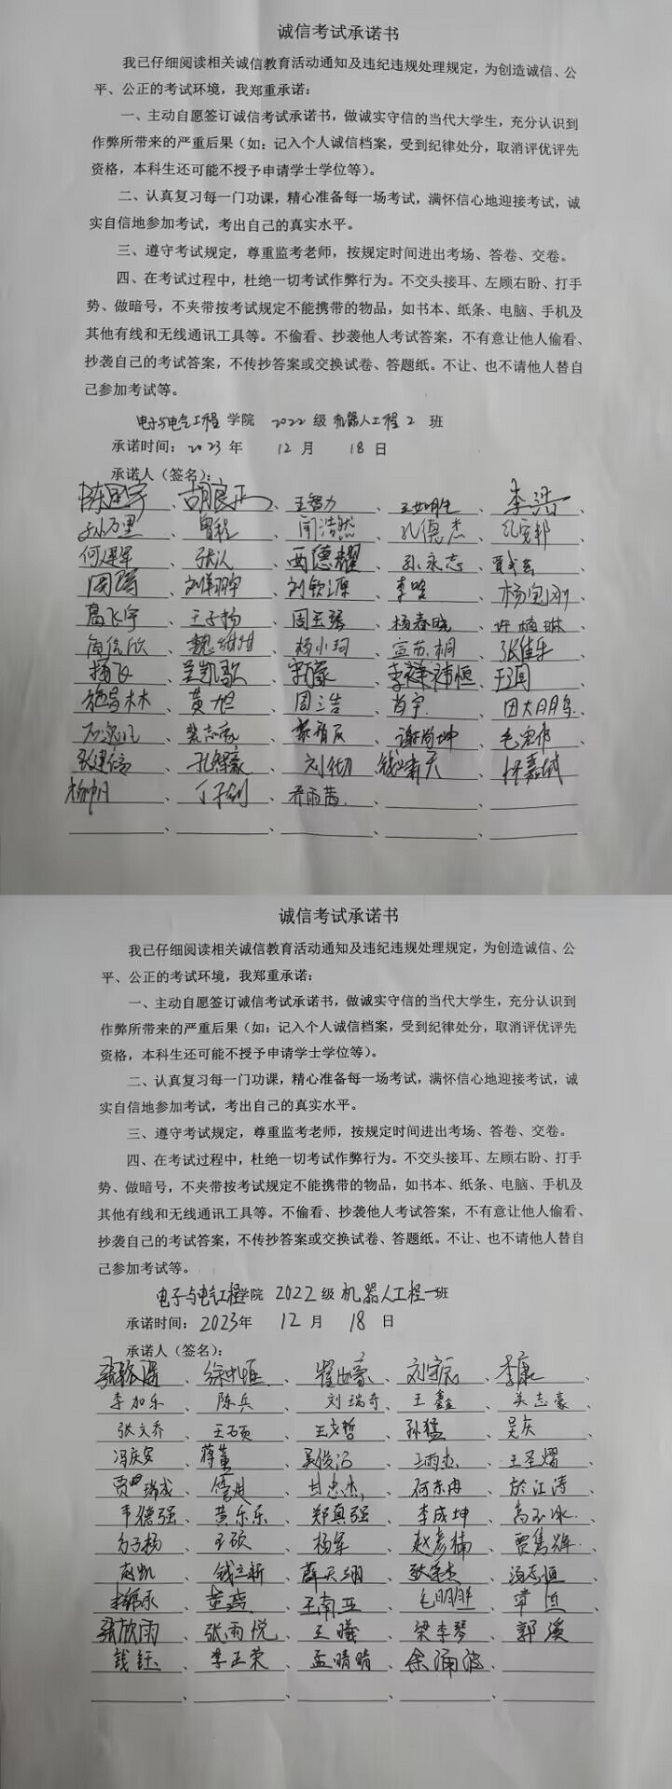 诚信考试承诺书
我已仔细阅读相关诚信教育活动通知及违纪违规处理规定，为创造诚信、公
平、公正的考试环境，我郑重承诺：
一、主动自愿签订诚信考试承诺书，做诚实守信的当代大学生，充分认识到
作弊所带来的严重后果（如：记入个人诚信档案，受到纪律处分，取消评优评先
资格，本科生还可能不授予申请学士学位等）。
二、认真复习每一门功课，精心准备每一场考试，满怀信心地迎接考试，诚
实自信地参加考试，考出自己的真实水平。
三、遵守考试规定，尊重监考老师，按规定时间进出考场、答卷、交卷。
四、在考试过程中，杜绝一切考试作弊行为。不交头接耳、左顾右盼、打手
势、做暗号，不夹带按考试规定不能携带的物品，如书本、纸条、电脑、手机及
其他有线和无线通讯工具等。不偷看、抄袭他人考试答案，不有意让他人偷看、
抄袭自己的考试答案，不传抄答案或交换试卷、答题纸。不让、也不请他人替自
己参加考试等。
电子与电气工程 学院 2022 级 机器人工程 2 班
承诺时间：2023 年 12 月 18 日
承诺人（签名）：
胡良正、王智力、李浩、
孙万里、曾程、闫浩然、孔德杰、
西德耀、孙永志、
周瑞、刘钦源、
高飞宇、王子杨、周玉强、杨春晓、
杨小珂、宣苏桐、张佳乐
杨飞、吴凯歌、
施林林、黄旭、周三浩、肖宇、田大朋鸟、
谢尚坤、
孔智豪、刘彻、钱靖天、
乔雨茜、
诚信考试承诺书
我已仔细阅读相关诚信教育活动通知及违纪违规处理规定，为创造诚信、公
平、公正的考试环境，我郑重承诺：
一、主动自愿签订诚信考试承诺书，做诚实守信的当代大学生，充分认识到
作弊所带来的严重后果（如：记入个人诚信档案，受到纪律处分，取消评优评先
资格，本科生还可能不授予申请学士学位等）。
二、认真复习每一门功课，精心准备每一场考试，满怀信心地迎接考试，诚
实自信地参加考试，考出自己的真实水平。
三、遵守考试规定，尊重监考老师，按规定时间进出考场、答卷、交卷。
四、在考试过程中，杜绝一切考试作弊行为。不交头接耳、左顾右盼、打手
势、做暗号，不夹带按考试规定不能携带的物品，如书本、纸条、电脑、手机及
其他有线和无线通讯工具等。不偷看、抄袭他人考试答案，不有意让他人偷看、
抄袭自己的考试答案，不传抄答案或交换试卷、答题纸。不让、也不请他人替自
己参加考试等。
电子与电气工程学院 2022 级 机器人工程一班
承诺时间：2023年 12 月 18 日
承诺人（签名）：
刘宇宸、李康、
李加乐、陈兵、刘瑞奇、王鑫、吴志豪、
张文乔、王硕、王文哲、孙猛、吴庆、
冯庆安、蒋董、吴俊汐、王雨杰、王圣熠、
贾瑞成、甘忠杰、何东冉、於江涛、
韦德强、黄乐乐、郑真强、李成坤、高玉冰、
方子杨、王硕、杨军、赵彦楠、贾隽辉、
赵凯、钱立新、薛天翊、汤志恒、
黄燕、王南亚、毛明胜、
张欣雨、张雨悦、王曦、梁李琴、郭溪、
钱钰、李正荣、孟晴晴、余涌波、